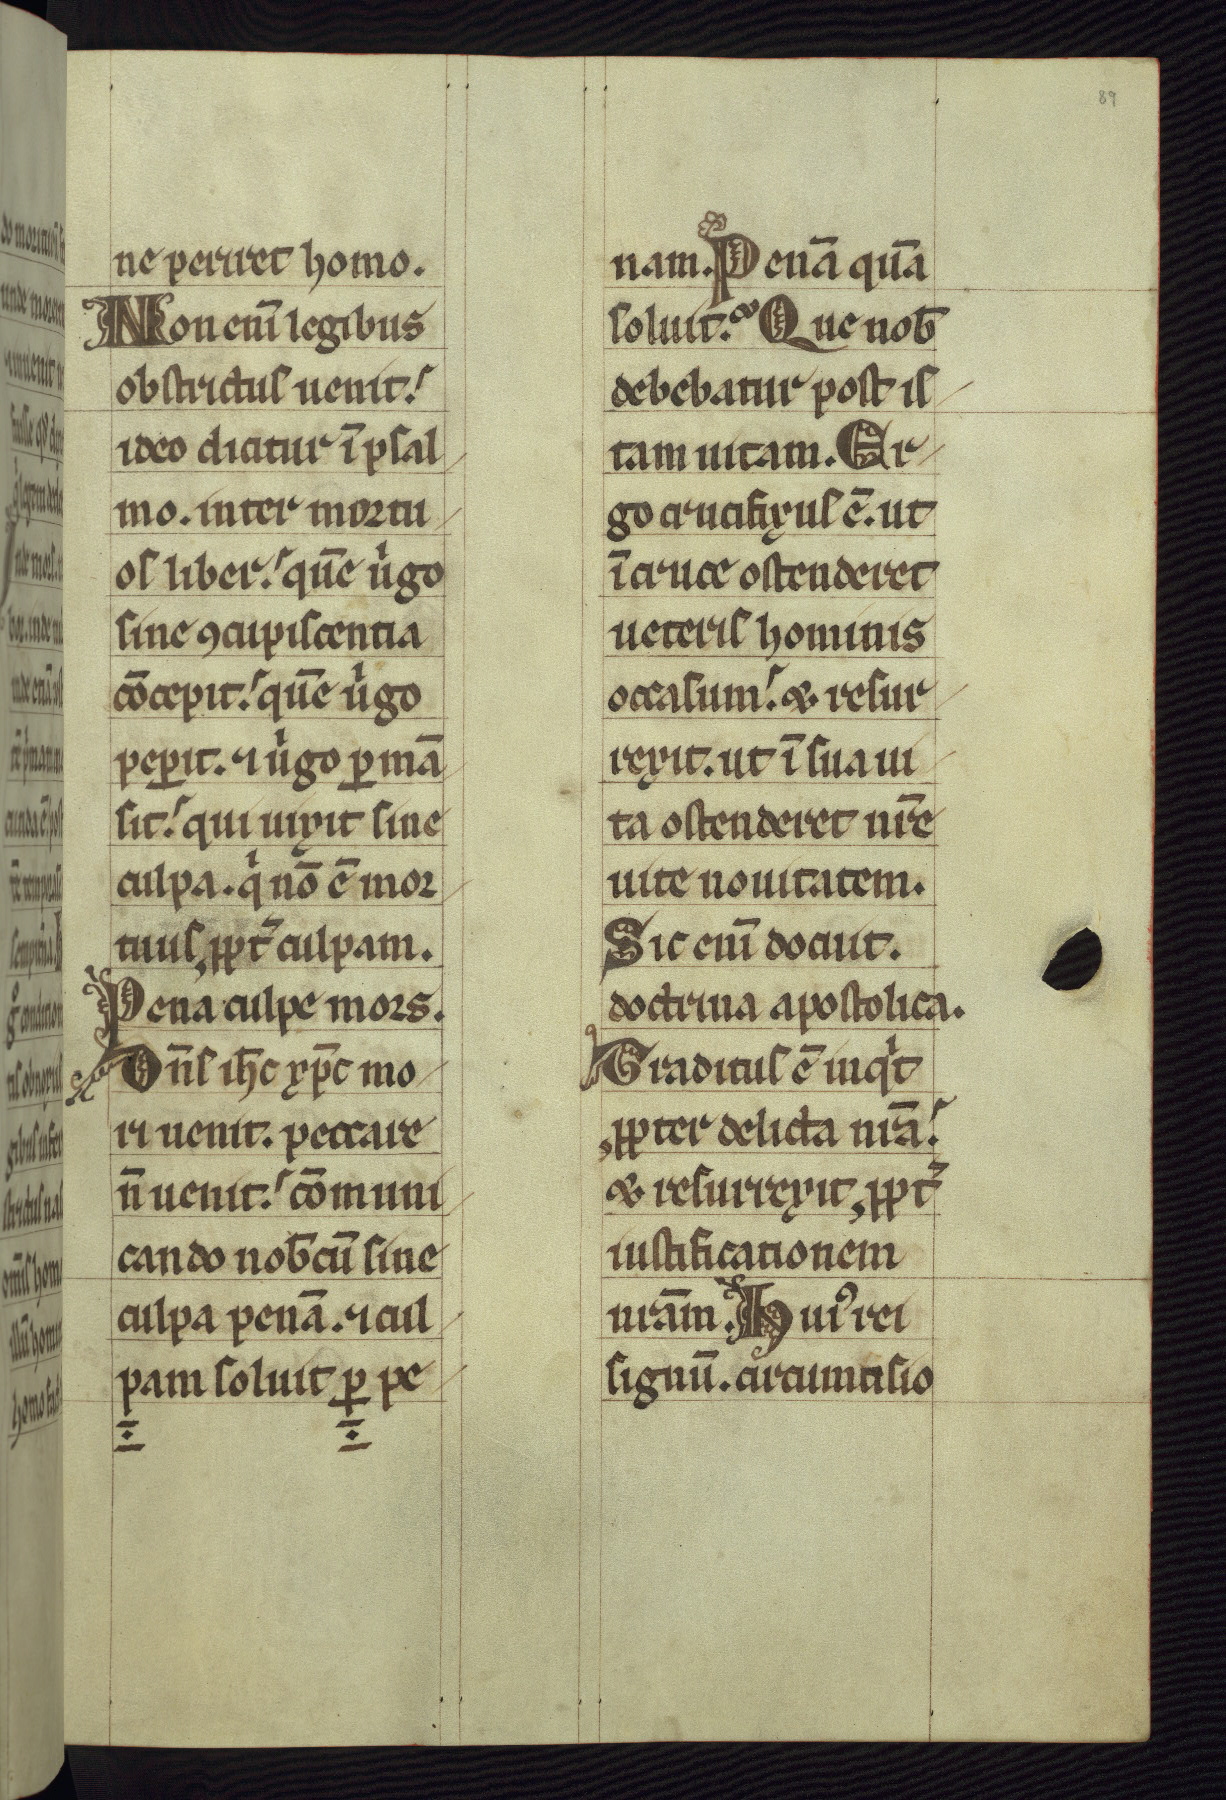 89
ne periret homo.
Non eni̅ legibus
obstrictus uenit.
ideo dicitur i̅ psal
mo. inter mortu
os liber. que̅ uͥgo
sine ꝯcupiscentia
co̅cepit. que̅ uͥgo
peꝑit. ⁊ uͥgo ꝑma̅
sit. qui uixit sine
culpa. qͥ no̅ e̅ mor
tuus ꝓpt̉ culpam.
Pena culpe mors.
Dn̅s ih̅c xp̅c mo
ri uenit. peccare
n̅ uenit. co̅muni
cando nob̅cu̅ sine
culpa pena̅. ⁊ cul
pam soluit ꝑ pe
nam. Pena̅ qua̅
soluit. Que nob̅
debebatur post is
tam uitam. Er
go crucifixus e̅. ut
i̅ cruce ostenderet
ueteris hominis
occasum. & resur
rexit. ut i̅ sua ui
ta ostenderet nr̅e
uite nouitatem.
Sic eni̅ docuit.
doctrina apostolica.
Traditus e̅ inqͥt
ꝓpter delicta nr̅a.
& resurrexit ꝓpt̉
iustificationem
nr̅am. Huiꝰ rei
signu̅. circumcisio